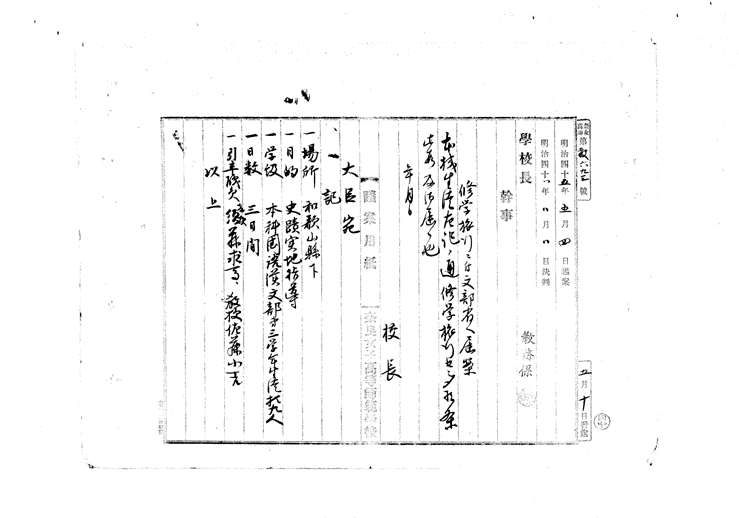 第教六九二號
明治四十五年五月四日起案
明治四十 年 月 日決判
學校長
幹事
教務係
五月十日發遣
修学旅行ニ付文部省ヘ届案
本校生徒左記ノ通修学旅行
此段及御届候也
年月日
校長
大臣宛
記
一場所 和歌山縣下
一目的 史蹟実地指導
一学級 本科国語漢文部第三学年生徒 人
一日数 三日間
一引率職氏 教授佐藤小吉
以上
議案用紙
奈良女子高等師範學校